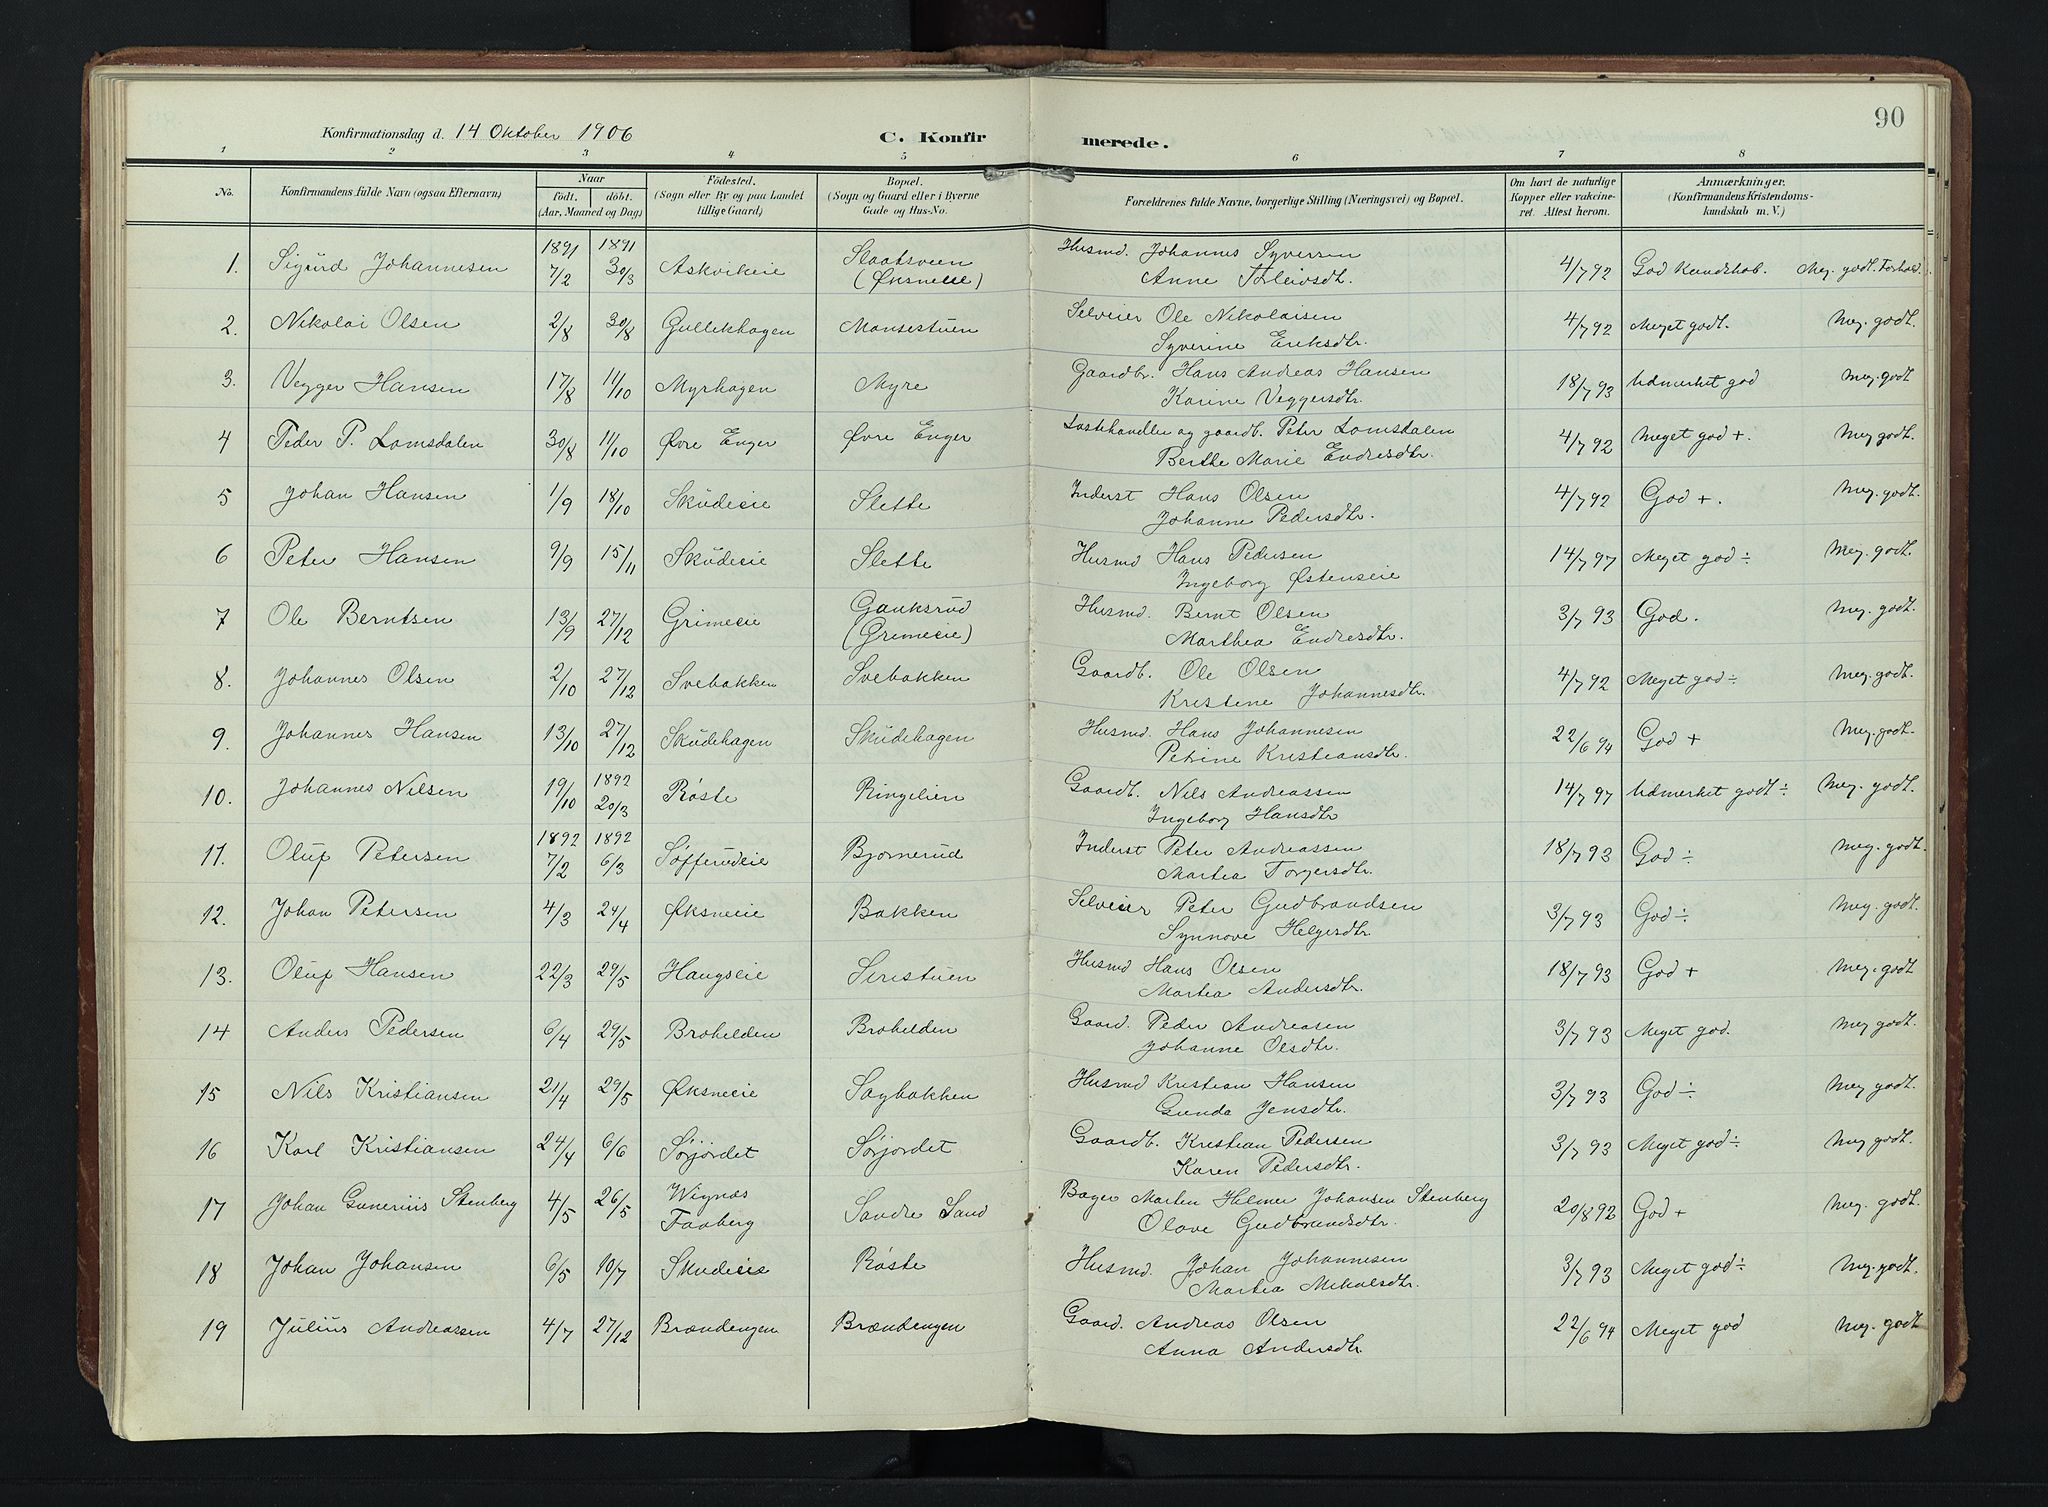 90
Konfirmationsdag d. 14 Oktober 1906 C. Konfirmerede.
1 2 3 4 5 6 7 8
No. Konfirmandens fulde Navn (ogsaa Efternavn) Naar født. døbt. (Aar, Maaned og Dag) Fødested. (Sogn eller By og paa Landet tillige Gaard) Bopæl. (Sogn og Gaard eller i Byerne Gade og Hus-No. Forældrenes fulde Navne, borgerlige Stilling (Næringsvei) og Bopæl. Om havt de naturlige Kopper eller vakcineret. Attest herom. Anmærkninger. (Konfirmandens Kristendomskundskab m. V.)
1. Sigurd Johannesen 1891 7/2 1891 30/3 Askvikeie Slaatsveen (Øksneeie) Husmd. Johannes Syversen 4/7 92 God Kundskab. Meg. godt. Forhold.
Anne Torleivsdtr.
2. Nikolai Olsen 2/8 30/8 Gullekhagen Mansestuen Selveier Ole Nikolaisen 4/7 92 Meget godt. Meg. godt.
Syverine Eriksdtr.
3. Vegger Hansen 17/8 11/10 Myrhagen Myre Gaardbr. Hans Andreas Hansen 18/7 93 Udmerket god Meg. godt
Karine Veggersdtr.
4 Peder P. Lomsdalen 30/8 11/10 Øvre Enger Øvre Enger Lastehandler og gaardb. Peter Lomsdalen 4/7 92 Meget god +. Meg godt.
Berthe Marie Endresdtr.
5 Johan Hansen 1/9 18/10 Skudeeie Slette Inderst Hans Olsen 4/7 92 God +. Meg. godt.
Johanne Pedersdtr.
6 Peter Hansen 9/9 15/11 Skudeeie Slette Husmd Hans Pedersen 14/7 97 Meget god ÷ Meg. godt.
Ingeborg Østenseie
7 Ole Berntsen 13/9 27/12 Grimeeie Gauksrud (Grimeeie) Husmd. Bernt Olsen 3/7 93 God. Meg. godt.
Marthea Endresdtr.
8. Johannes Olsen 2/10 27/12 Svebakken Svebakken Gaardb. Ole Olsen 4/7 92 Meget god ÷ Meg. godt.
Kristine Johannesdtr.
9. Johannes Hansen 13/10 27/12 Skudehagen Skudehagen Husmd. Hans Johannesen 22/6 94 God + Meg. godt.
Petrine Kristiansdtr.
10. Johannes Nilsen 19/10 1892 20/3 Røste Ringelien Gaardb. Nils Andreassen 14/7 97 Udmerket godt ÷ Meg. godt.
Ingeborg Hansdtr
11. Oluf Petersen 1892 7/2 1892 6/3 Søfferudeie Bjornerud Inderst Peter Andreassen 18/7 93 God ÷ Meg. godt.
Martea Torgersdtr.
12. Johan Petersen 4/3 24/4 Øksneeie Bakken Selveier Peter Gudbrandsen 3/7 93 God ÷ Meg. godt.
Synnove Helgesdtr.
13. Oluf Hansen 22/3 29/5 Haugseie Siristuen Husmd Hans Olsen 18/7 93 God + Meg. godt.
Martea Andersdtr.
14 Anders Pedersen 6/4 29/5 Brohelden Brohelden Gaard. Peder Andreasen 3/7 93 Meget god. Meg godt.
Johanne Olsdtr.
15 Nils Kristiansen 21/4 29/5 Øksneeie Sagbakken Husmd Kristian Hansen 3/7 93 God ÷ Meg godt.
Gunda Jensdtr.
16 Karl Kristiansen 24/4 6/6 Sørjordet Sørjordet Gaardb. Kristian Pedersen 3/7 93 Meget god ÷ Meg godt.
Karen Pedersdtr.
17 Johan Gunerius Stenberg 4/5 26/5 Wignæs Faaberg Søndre Sand Bager Marten Helmer Johansen Stenberg 20/8 92 God + Meg. godt.
Olave Gudbrandsdtr.
18 Johan Johansen 6/5 10/7 Skudeeie Røste Husmd. Johan Johannesen 3/7 93 Meget god ÷ Meg. godt.
Martea Mikalsdtr.
19 Julius Andreassen 4/7 27/12 Brændengen Brændengen Gaard. Andreas Olsen 22/6 94 Meget god Meg. godt
Anna Andersdtr.